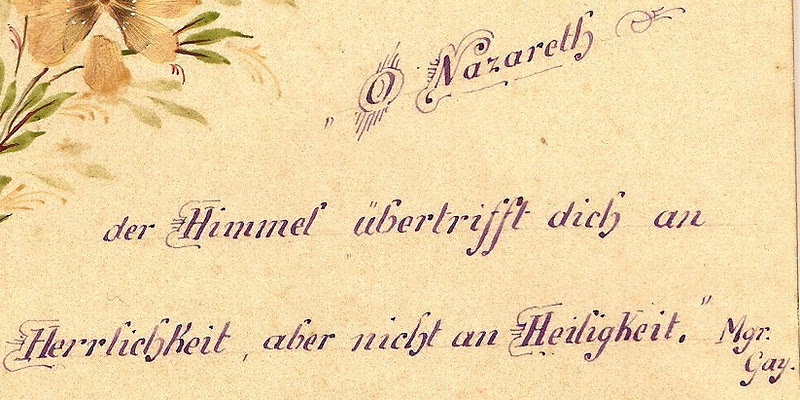 „O Nazareth
der Himmel übertrifft dich an
Herrlichkeit, aber nicht an Heiligkeit." Mgr.
Gay.